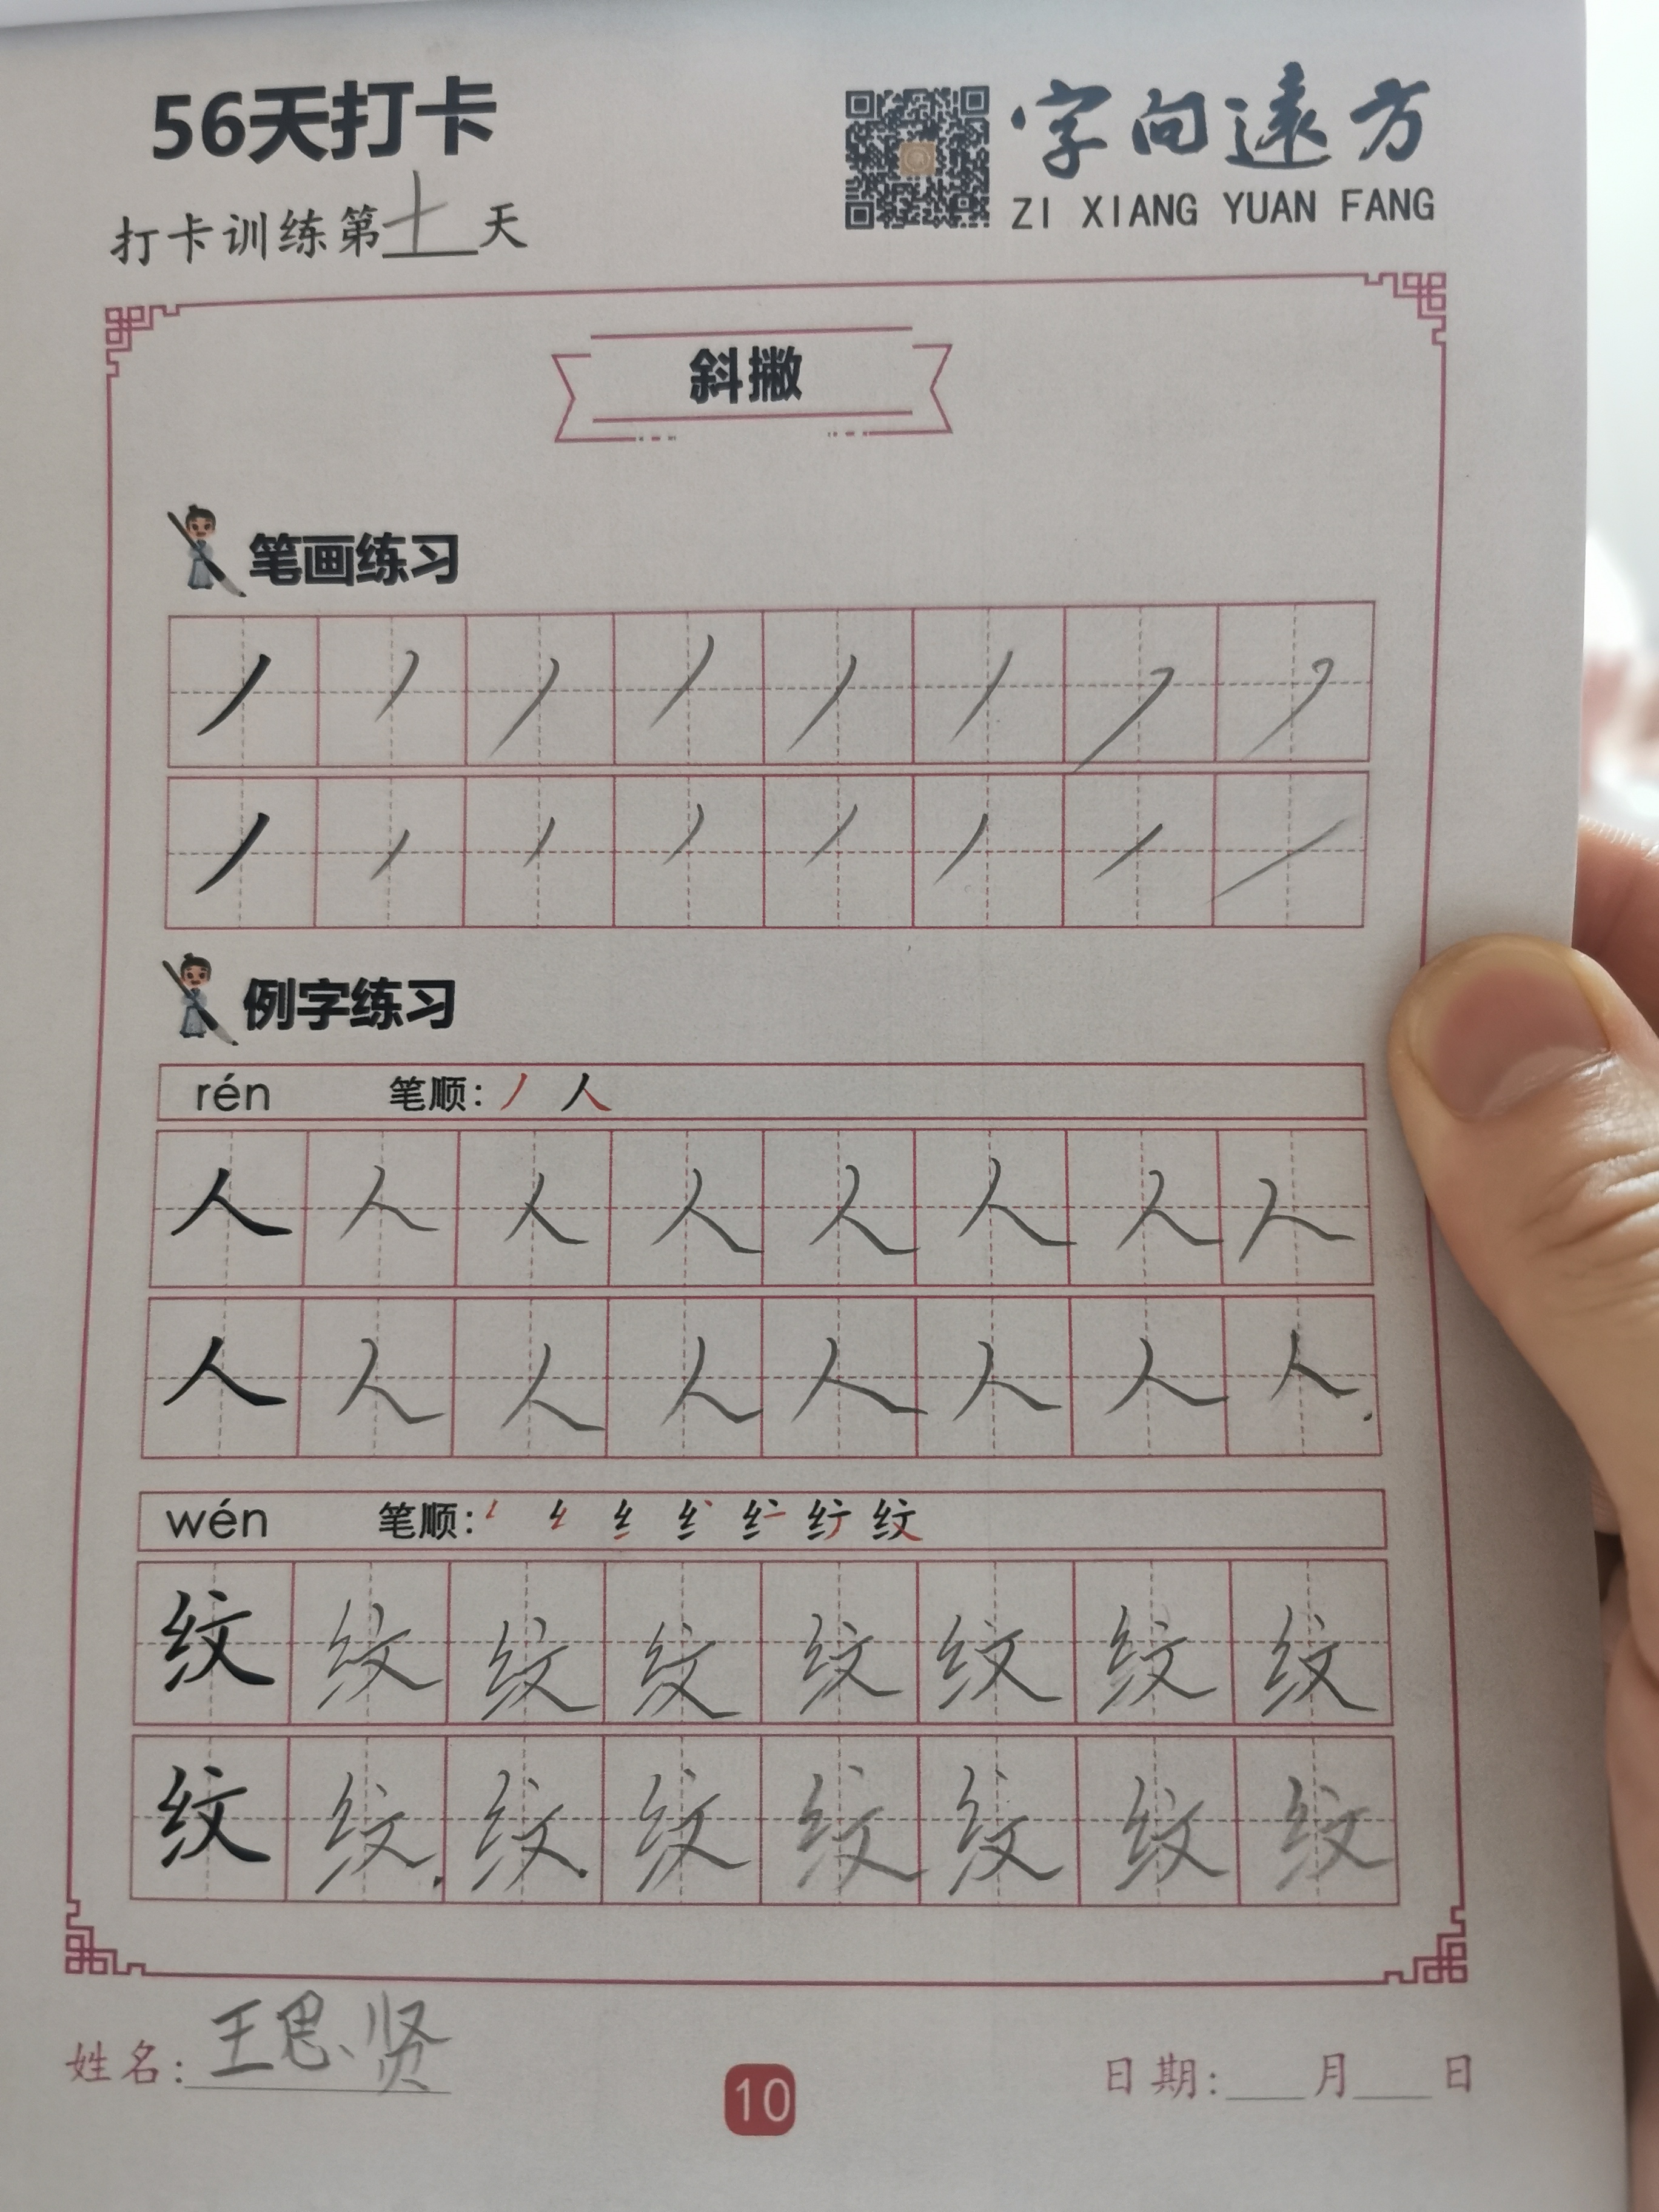 56天打卡
字向遠方
ZI XIANG YUAN FANG
打卡训练第十天
斜撇
笔画练习
丿 丿 丿 丿 丿 丿 丿 丿
丿 丿 丿 丿 丿 丿 丿 丿
例字练习
rén 笔顺: 丿 人
人 人 人 人 人 人 人 人
人 人 人 人 人 人 人 人
wén 笔顺: 纹
纹 纹 纹 纹 纹 纹 纹 纹
纹 纹 纹 纹 纹 纹 纹 纹
姓名: 王思贤
10
日期:___月___日